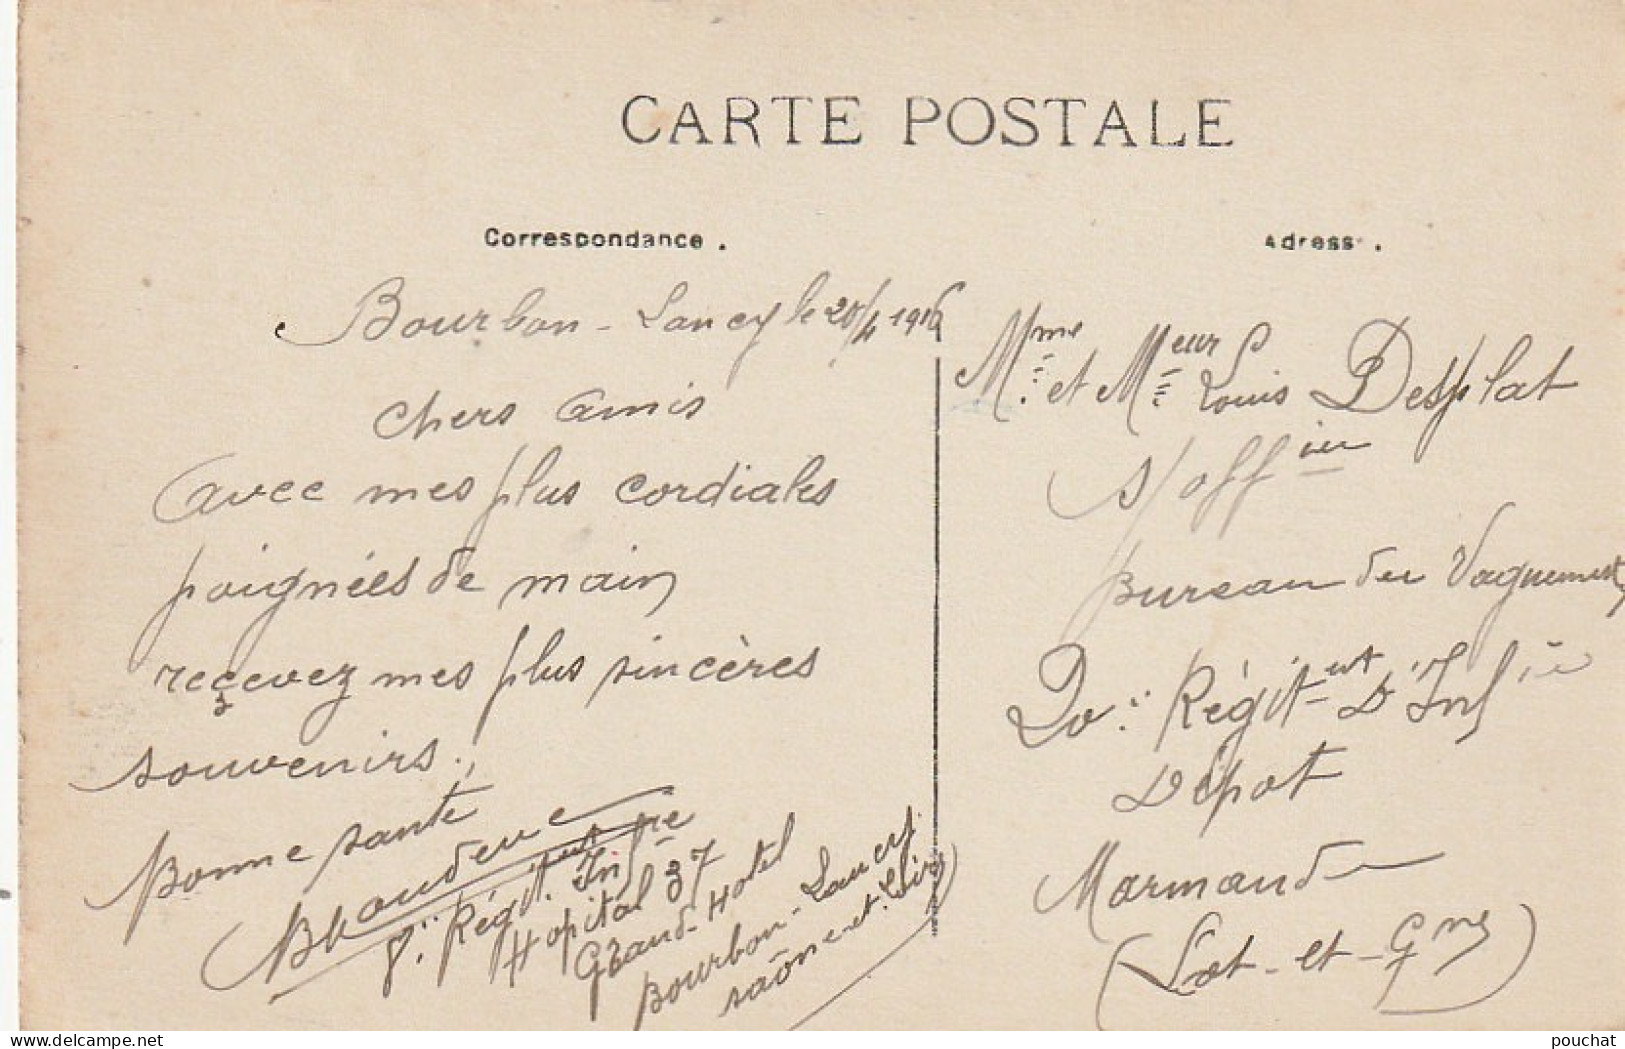 CARTE POSTALE
Correspondance.
Bourbon-Lancy le 20/4 1916
chers amis
avec mes plus cordiales
poignées de main
reçevez mes plus sincères
souvenirs.,
Bonne santé
8e Régit. Infre
Hopital 37
Grand-Hotel
Bourbon-Lancy.
saône-et-Loire)
Adress .
Mme et Meur Louis Desplat
s/offier
Bureau du Vaguemest
20e Régitent D'Infie
Dépot
Marmande
(Lot-et-Gne)
www.delcampe.net
pouchat